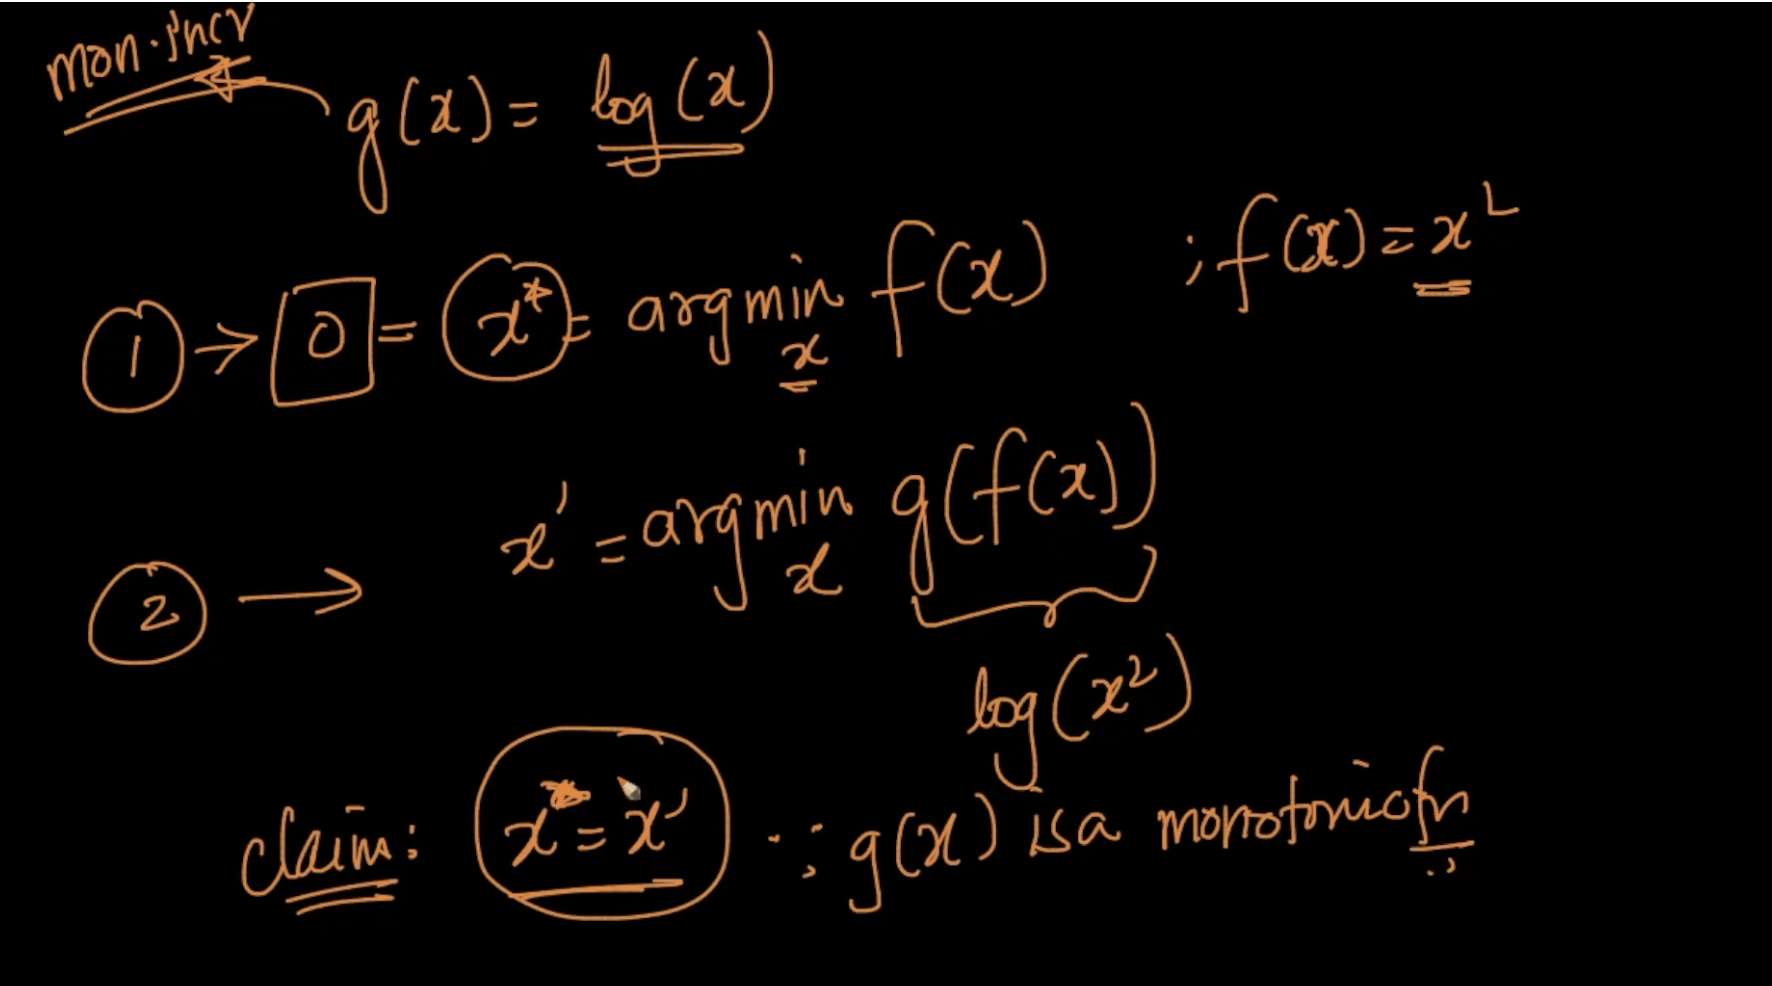 mon. incr
g(x) = log(x)
1 → 0 = x* = argmin f(x) ; f(x) = x²
x
2 → x' = argmin g(f(x))
x
log(x²)
claim: x* = x' ∵ g(x) is a monotonic fn